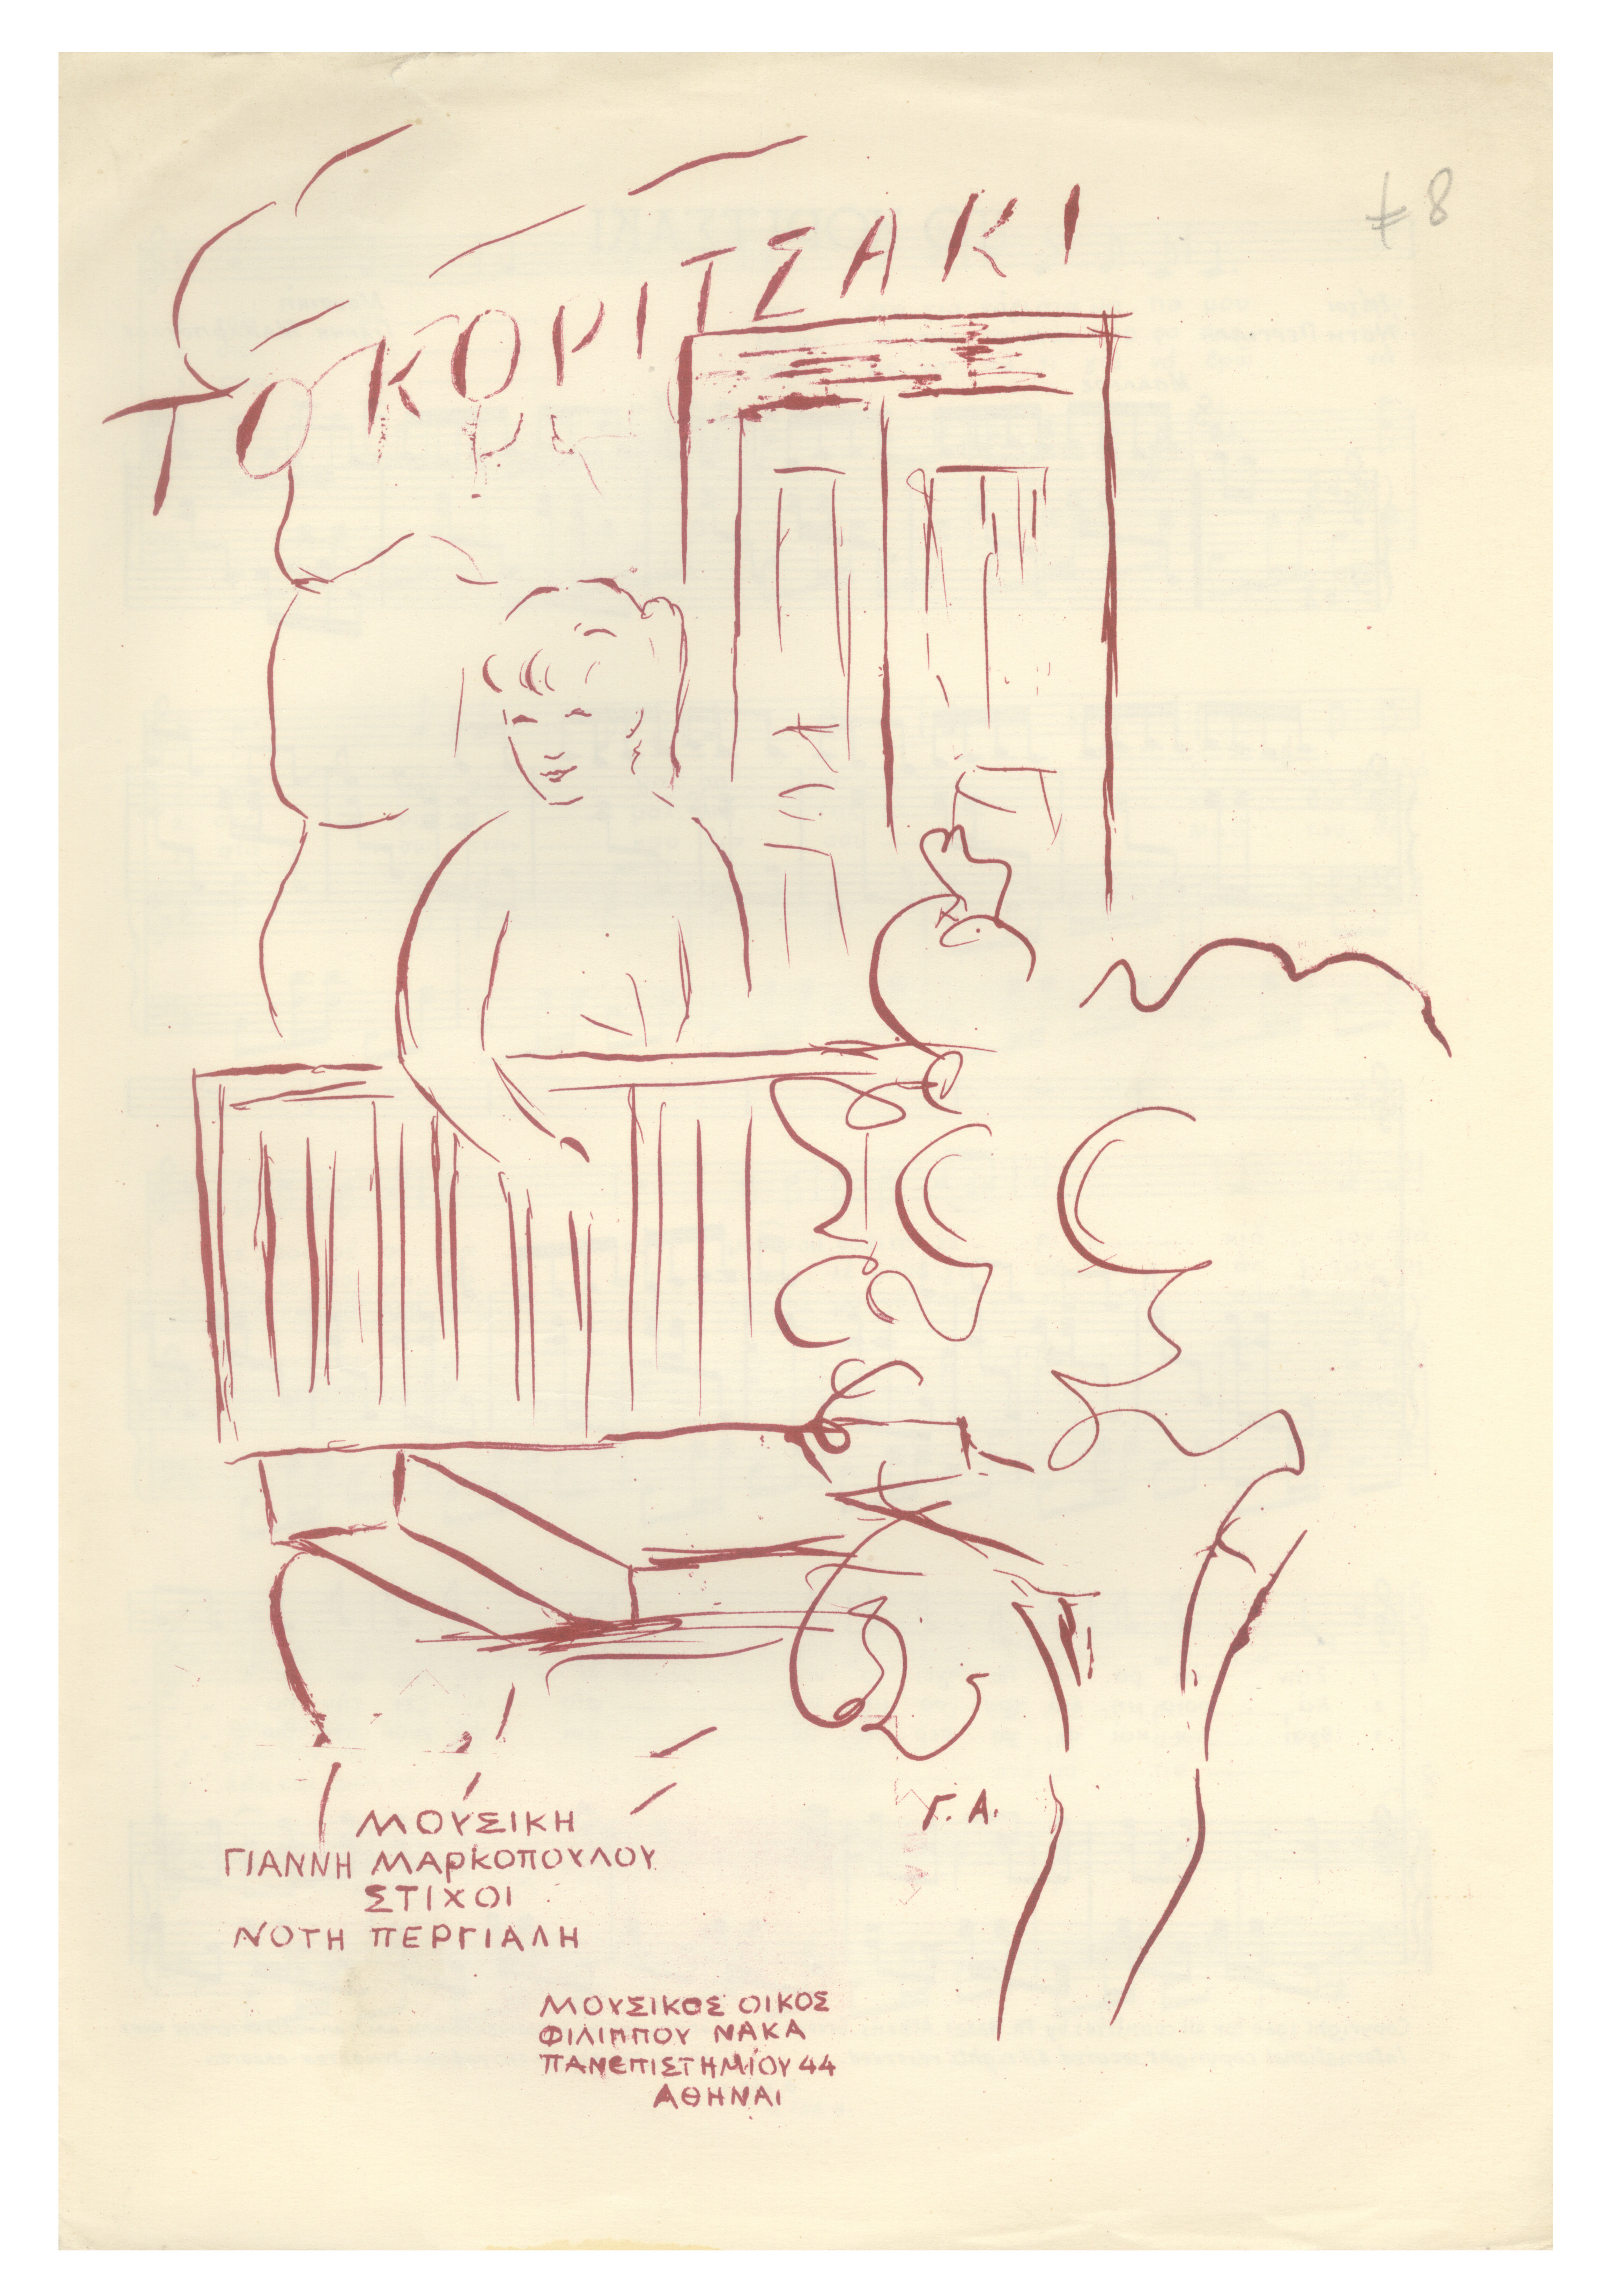 ΤΟ ΚΟΡΙΤΣΑΚΙ
₤ 8
ΜΟΥΣΙΚΗ
ΓΙΑΝΝΗ ΜΑΡΚΟΠΟΥΛΟΥ
ΣΤΙΧΟΙ
ΝΟΤΗ ΠΕΡΓΙΑΛΗ
Γ. Α.
ΜΟΥΣΙΚΟΣ ΟΙΚΟΣ
ΦΙΛΙΠΠΟΥ ΝΑΚΑ
ΠΑΝΕΠΙΣΤΗΜΙΟΥ 44
ΑΘΗΝΑΙ